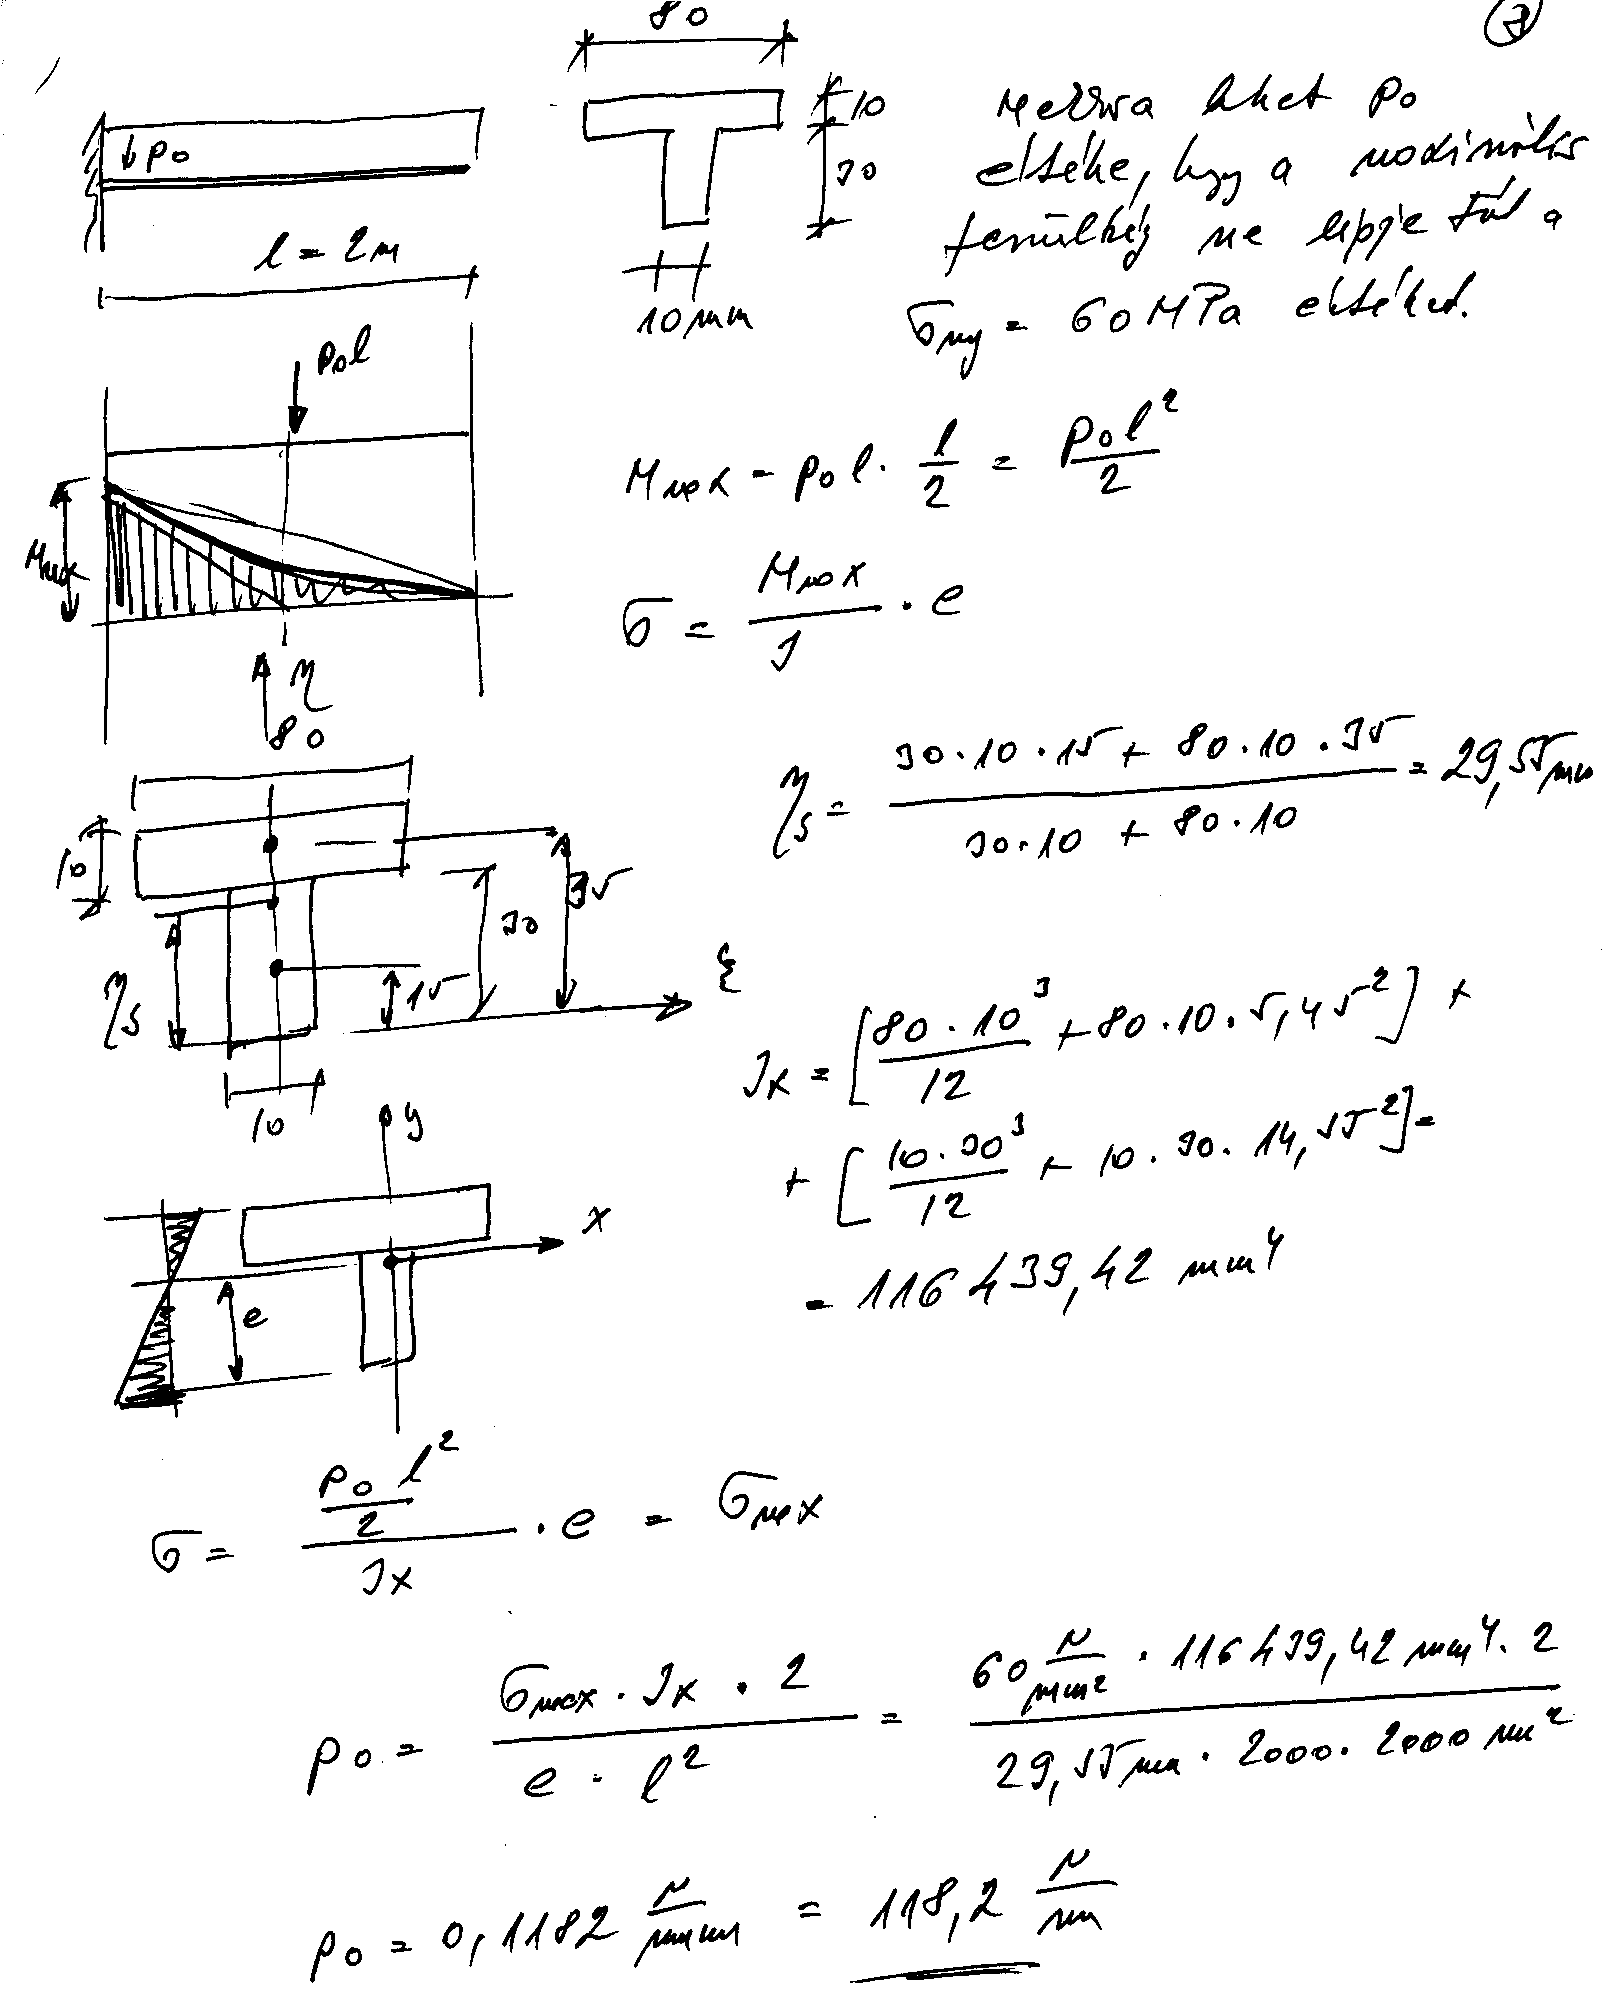 ③
80
10
30
10 mm
p₀
l = 2m
Mekkora lehet p₀
értéke, hogy a maximális
feszültség ne lépje túl a
σmeg = 60 MPa értéket.
p₀l
Mmax = p₀ l · l/2 = p₀l²/2
Mmax
σ = Mmax/J · e
η
80
ηs = (30·10·15 + 80·10·35)/(30·10 + 80·10) = 29,55 mm
10
35
30
15
ξ
ηs
10
Jx = [80·10³/12 + 80·10·5,45²] +
+ [10·30³/12 + 10·30·14,55²] =
= 116 439,42 mm⁴
y
x
e
σ = (p₀ l²/2)/Jx · e = σmax
p₀ = (σmax · Jx · 2)/(e · l²) = (60 N/mm² · 116 439,42 mm⁴ · 2)/(29,55 mm · 2000 · 2000 mm²)
p₀ = 0,1182 N/mm = 118,2 N/m